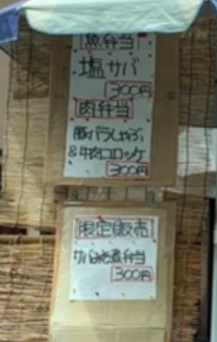 魚弁当
塩サバ
300円
肉弁当
豚バラしゃぶ
&牛肉コロッケ
300円
限定販売
サバの味噌煮弁当
300円